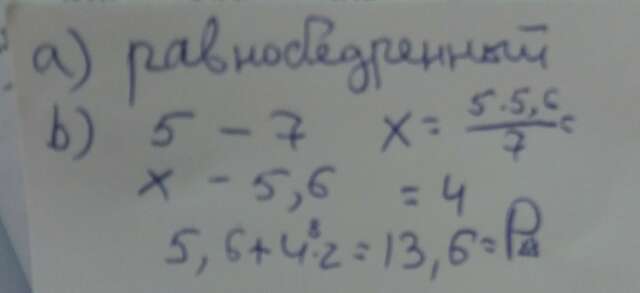 а) равнобедренный
b) 5 - 7 x = 5·5,6/7 =
x - 5,6 = 4
5,6+4·2=13,6=P△